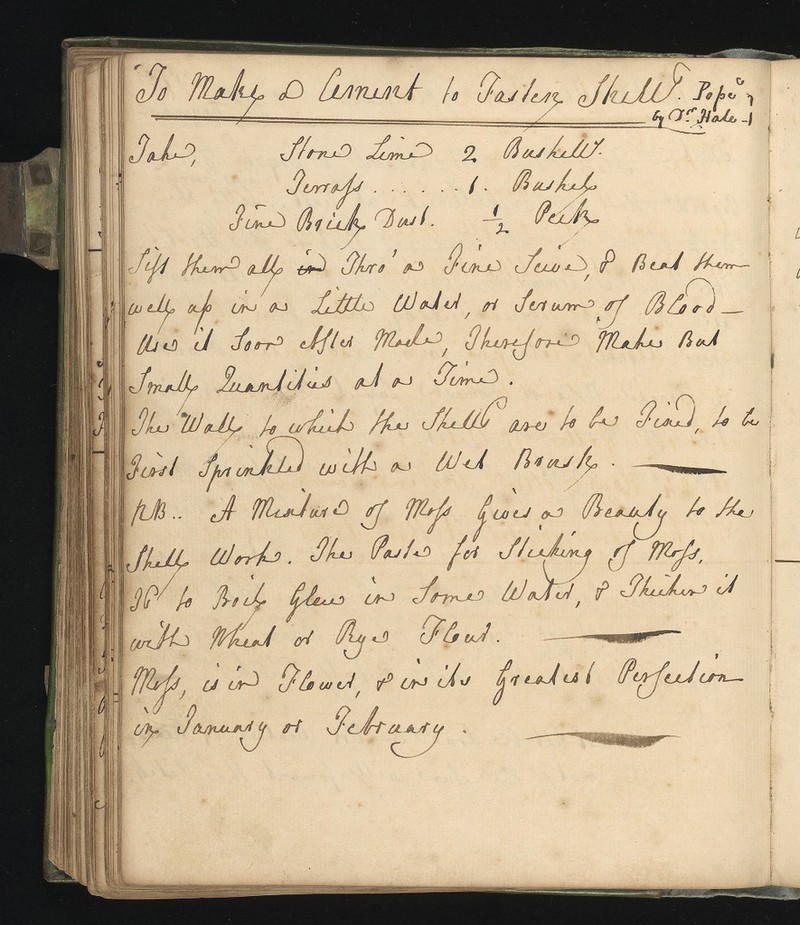 To Make a Cement to Fasten Shells. Pope
by Dr. Hale
Take, Stone Lime 2 Bushells.
Terrass . . . . . . 1. Bushel
Fine Brick Dust. ½ Peck
Sift them all in Thro' a Fine Seive, & Beat them
well up in a Little Water, or Serum of Blood —
Use it Soon After Made, Therefore Make But
Small Quantities at a Time.
The Wall to which the Shells are to be Fixed, to be
First Sprinkled with a Wet Brush.
NB.. A Mixture of Moss Gives a Beauty to the
Shell Work. The Paste for Sticking of Moss,
Is to Boil Glew in Some Water, & Thicken it
with Wheat or Rye Flour.
Moss, is in Flower, & in its Greatest Perfection
in January or February.